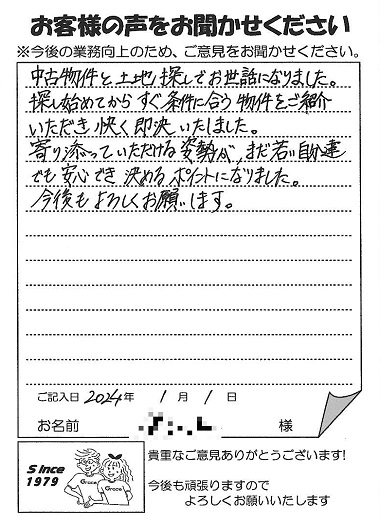 お客様の声をお聞かせください
※今後の業務向上のため、ご意見をお聞かせください。
中古物件と土地探しでお世話になりました。
探し始めてからすぐ条件に合う物件をご紹介
いただき快く即決いたしました。
寄り添っていただける姿勢が、まだ若い自分達
でも安心でき決めるポイントになりました。
今後もよろしくお願いします。
ご記入日 2024年 1月 1日
お名前 様
Since
1979
Grace
Grace
貴重なご意見ありがとうございます!
今後も頑張りますので
よろしくお願いいたします